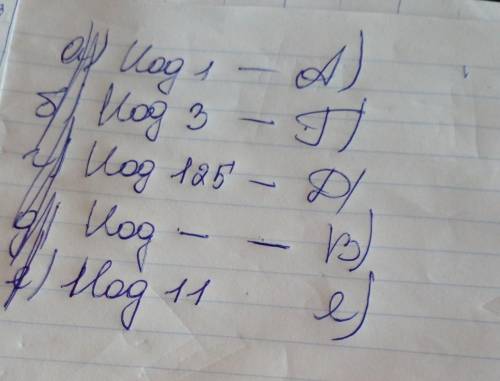 а) Код 1 — А)
б) Код 3 — Г)
г) Код 125 — Д)
д) Код - — В)
е) Код 11 е)